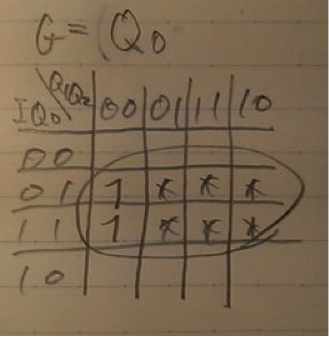 G = Q0
Q1Q2
IQ0 00 01 11 10
00
01 1 * * *
11 1 * * *
10